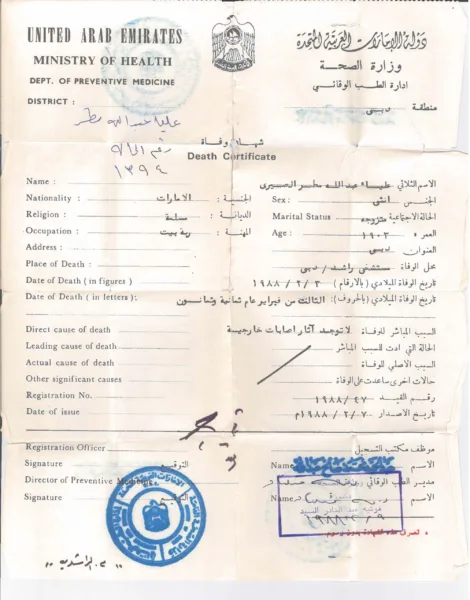 UNITED ARAB EMIRATES
دولة الإمارات العربية المتحدة
MINISTRY OF HEALTH
وزارة الصحة
DEPT. OF PREVENTIVE MEDICINE
ادارة الطب الوقائي
DISTRICT :
منطقة دبي
علياء عبدالله مطر
رقم
١٣٩٤
شهادة وفاة
Death Certificate
Name : علياء عبدالله مطر الاسم الثلاثي
Nationality : الامارات الجنسية : Sex : انثى الجنس
Religion : مسلمة الديانة : Marital Status متزوجه الحالة الاجتماعية
Occupation : ربة بيت المهنة : Age : ١٩٠٣ العمر
Address : دبي العنوان
Place of Death : مستشفى راشد / دبي محل الوفاة
Date of Death ( in figures ) ١٩٨٨ / ٢ / ٣ تاريخ الوفاة الميلادي (بالارقام)
Date of Death ( in letters ); الثالث من فبراير عام ثمانية وثمانون تاريخ الوفاة الميلادي (بالحروف):
Direct cause of death لا توجد آثار اصابات خارجية السبب المباشر للوفاة :
Leading cause of death الحالة التي ادت للسبب المباشر
Actual cause of death السبب الاصلي للوفاة
Other significant causes حالات اخرى ساعدت على الوفاة
Registration No. ١٩٨٨ / ٤٧ رقم القيد
Date of issue ١٩٨٨ / ٢ / ٧م تاريخ الاصدار
Registration Officer موظف مكتب التسجيل
Signature التوقيع Name الاسم
Director of Preventive Medicine مدير الطب الوقائي
Signature التوقيع Name الاسم